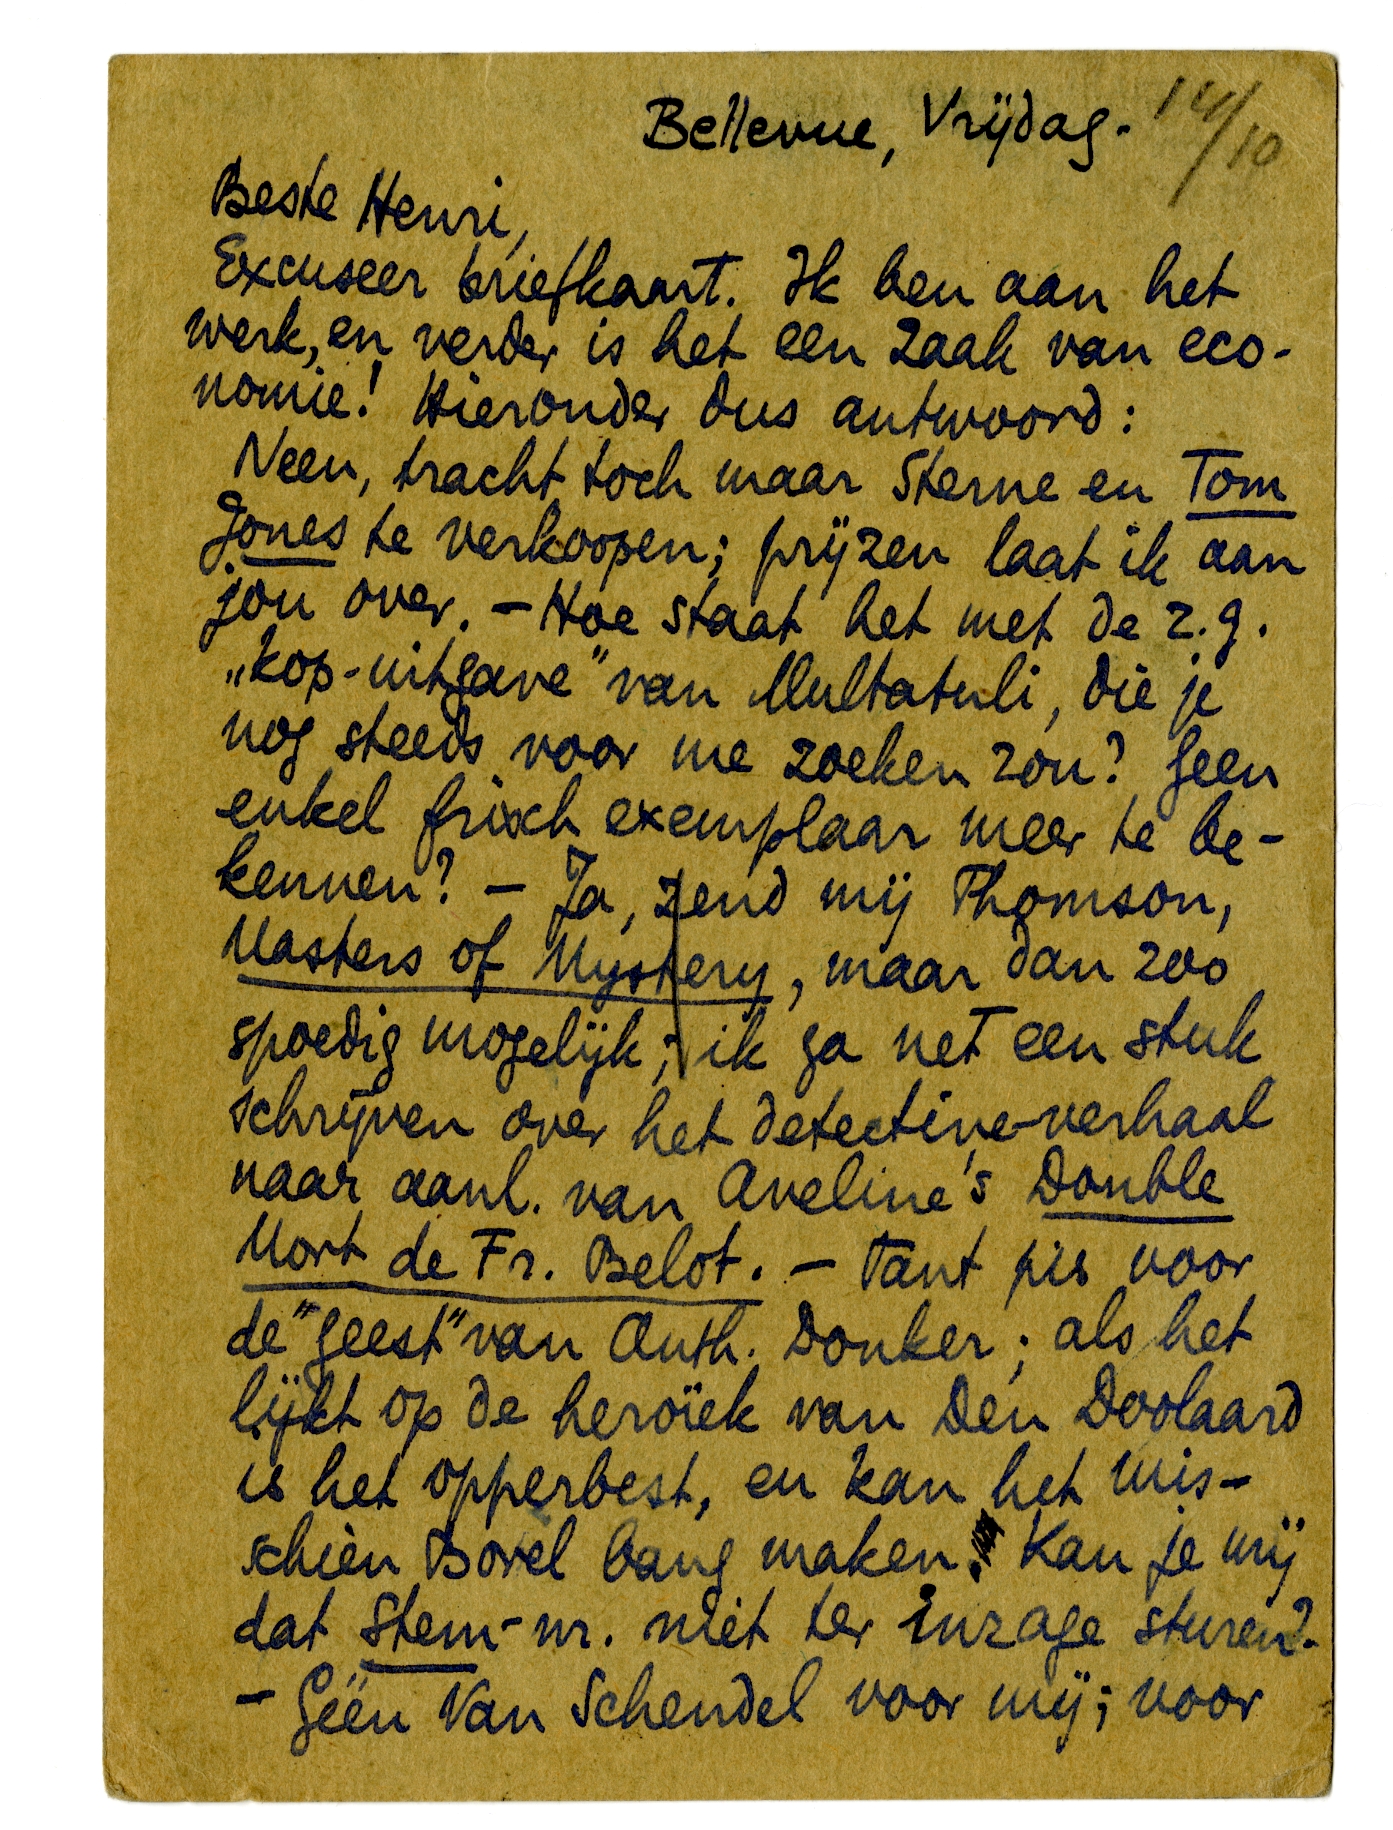 Bellevue, Vrijdag. 14/10
Beste Henri,
Excuseer briefkaart. Ik ben aan het
werk, en verder is het een zaak van eco-
nomie! Hieronder dus antwoord:
Neen, tracht toch maar Sterne en Tom
Jones te verkoopen; prijzen laat ik aan
jou over. – Hoe staat het met de z.g.
„kop-uitgave” van Multatuli, die je
nog steeds voor me zoeken zou? Geen
enkel frisch exemplaar meer te be-
kennen? – Ja, zend mij Thomson,
Masters of Mystery, maar dan zoo
spoedig mogelijk; ik ga net een stuk
schrijven over het detective-verhaal
naar aanl. van Aveline's Double
Mort de Fr. Belot. – Tant pis voor
de "geest" van Anth. Donker; als het
lijkt op de heroïek van Den Doolaard
is het opperbest, en kan het mis-
schien Borel bang maken. Kan je mij
dat Stem-nr. niet ter inzage sturen?
– Géén Van Schendel voor mij; voor